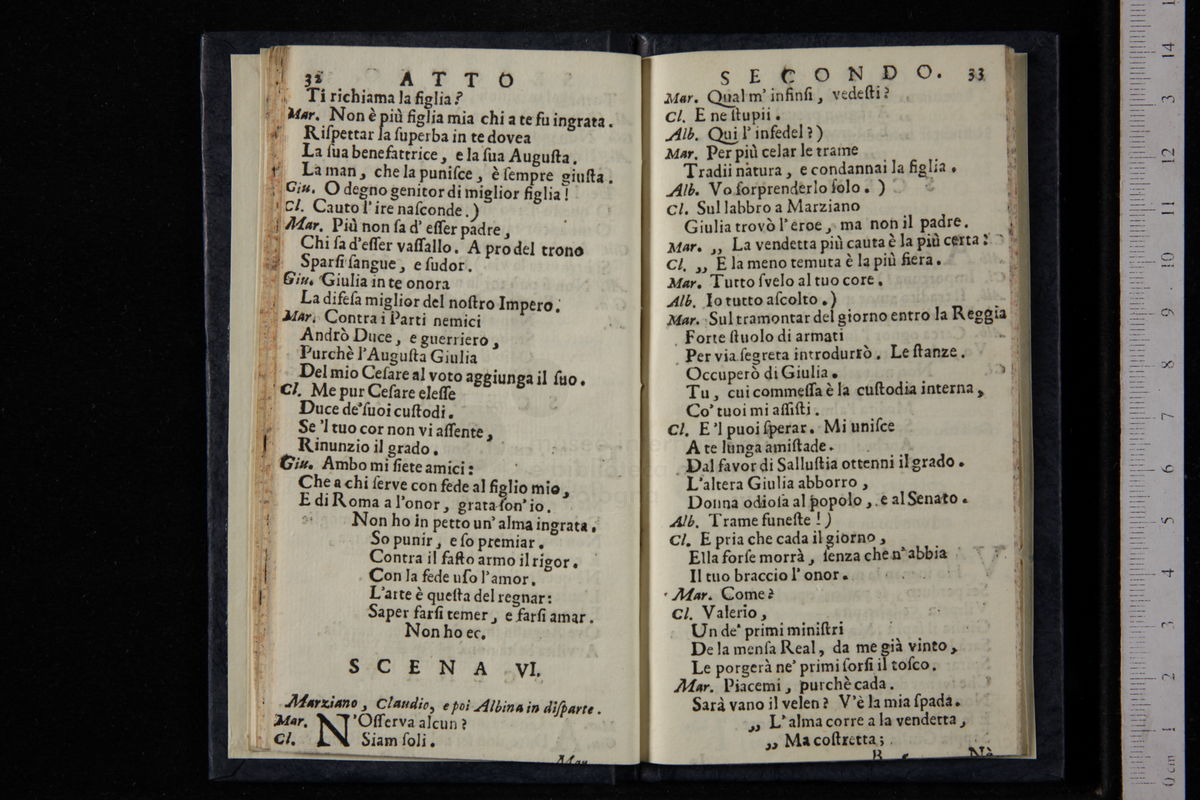 32 ATTO
Ti richiama la figlia?
Mar. Non è più figlia mia chi a te fu ingrata.
Riſpettar la ſuperba in te dovea
La ſua benefattrice, e la ſua Auguſta.
La man, che la puniſce, è ſempre giuſta.
Giu. O degno genitor di miglior figlia!
Cl. Cauto l'ire naſconde.)
Mar. Più non ſa d'eſſer padre,
Chi ſa d'eſſer vaſſallo. A pro del trono
Sparſi ſangue, e ſudor.
Giu. Giulia in te onora
La difeſa miglior del noſtro Impero.
Mar. Contra i Parti nemici
Andrò Duce, e guerriero,
Purchè l'Auguſta Giulia
Del mio Ceſare al voto aggiunga il ſuo.
Cl. Me pur Ceſare eleſſe
Duce de' ſuoi cuſtodi.
Se 'l tuo cor non vi aſſente,
Rinunzio il grado.
Giu. Ambo mi ſiete amici:
Che a chi ſerve con fede al figlio mio,
E di Roma a l'onor, grata ſon' io.
Non ho in petto un' alma ingrata.
So punir, e ſo premiar.
Contra il faſto armo il rigor.
Con la fede uſo l'amor.
L'arte è queſta del regnar:
Saper farſi temer, e farſi amar.
Non ho ec.
SCENA VI.
Marziano, Claudio, e poi Albina in diſparte.
Mar. N'Oſſerva alcun?
Cl. Siam ſoli.
Mar.
SECONDO. 33
Mar. Qual m' infinſi, vedeſti?
Cl. E ne ſtupii.
Alb. Qui l' infedel?)
Mar. Per più celar le trame
Tradii natura, e condannai la figlia.
Alb. Vo ſorprenderlo ſolo. )
Cl. Sul labbro a Marziano
Giulia trovò l'eroe, ma non il padre.
Mar. ,, La vendetta più cauta è la più certa:
Cl. ,, E la meno temuta è la più fiera.
Mar. Tutto ſvelo al tuo core.
Alb. Io tutto aſcolto.)
Mar. Sul tramontar del giorno entro la Reggia
Forte ſtuolo di armati
Per via ſegreta introdurrò. Le ſtanze.
Occuperò di Giulia.
Tu, cui commeſſa è la cuſtodia interna,
Co' tuoi mi aſſiſti.
Cl. E 'l puoi ſperar. Mi uniſce
A te lunga amiſtade.
Dal favor di Salluſtia ottenni il grado.
L'altera Giulia abborro,
Donna odioſa al popolo, e al Senato.
Alb. Trame funeſte!)
Cl. E pria che cada il giorno,
Ella forſe morrà, ſenza che n' abbia
Il tuo braccio l' onor.
Mar. Come?
Cl. Valerio,
Un de' primi miniſtri
De la menſa Real, da me già vinto,
Le porgerà ne' primi ſorſi il toſco.
Mar. Piacemi, purchè cada.
Sarà vano il velen? V'è la mia ſpada.
,, L' alma corre a la vendetta,
,, Ma coſtretta;
B Nè